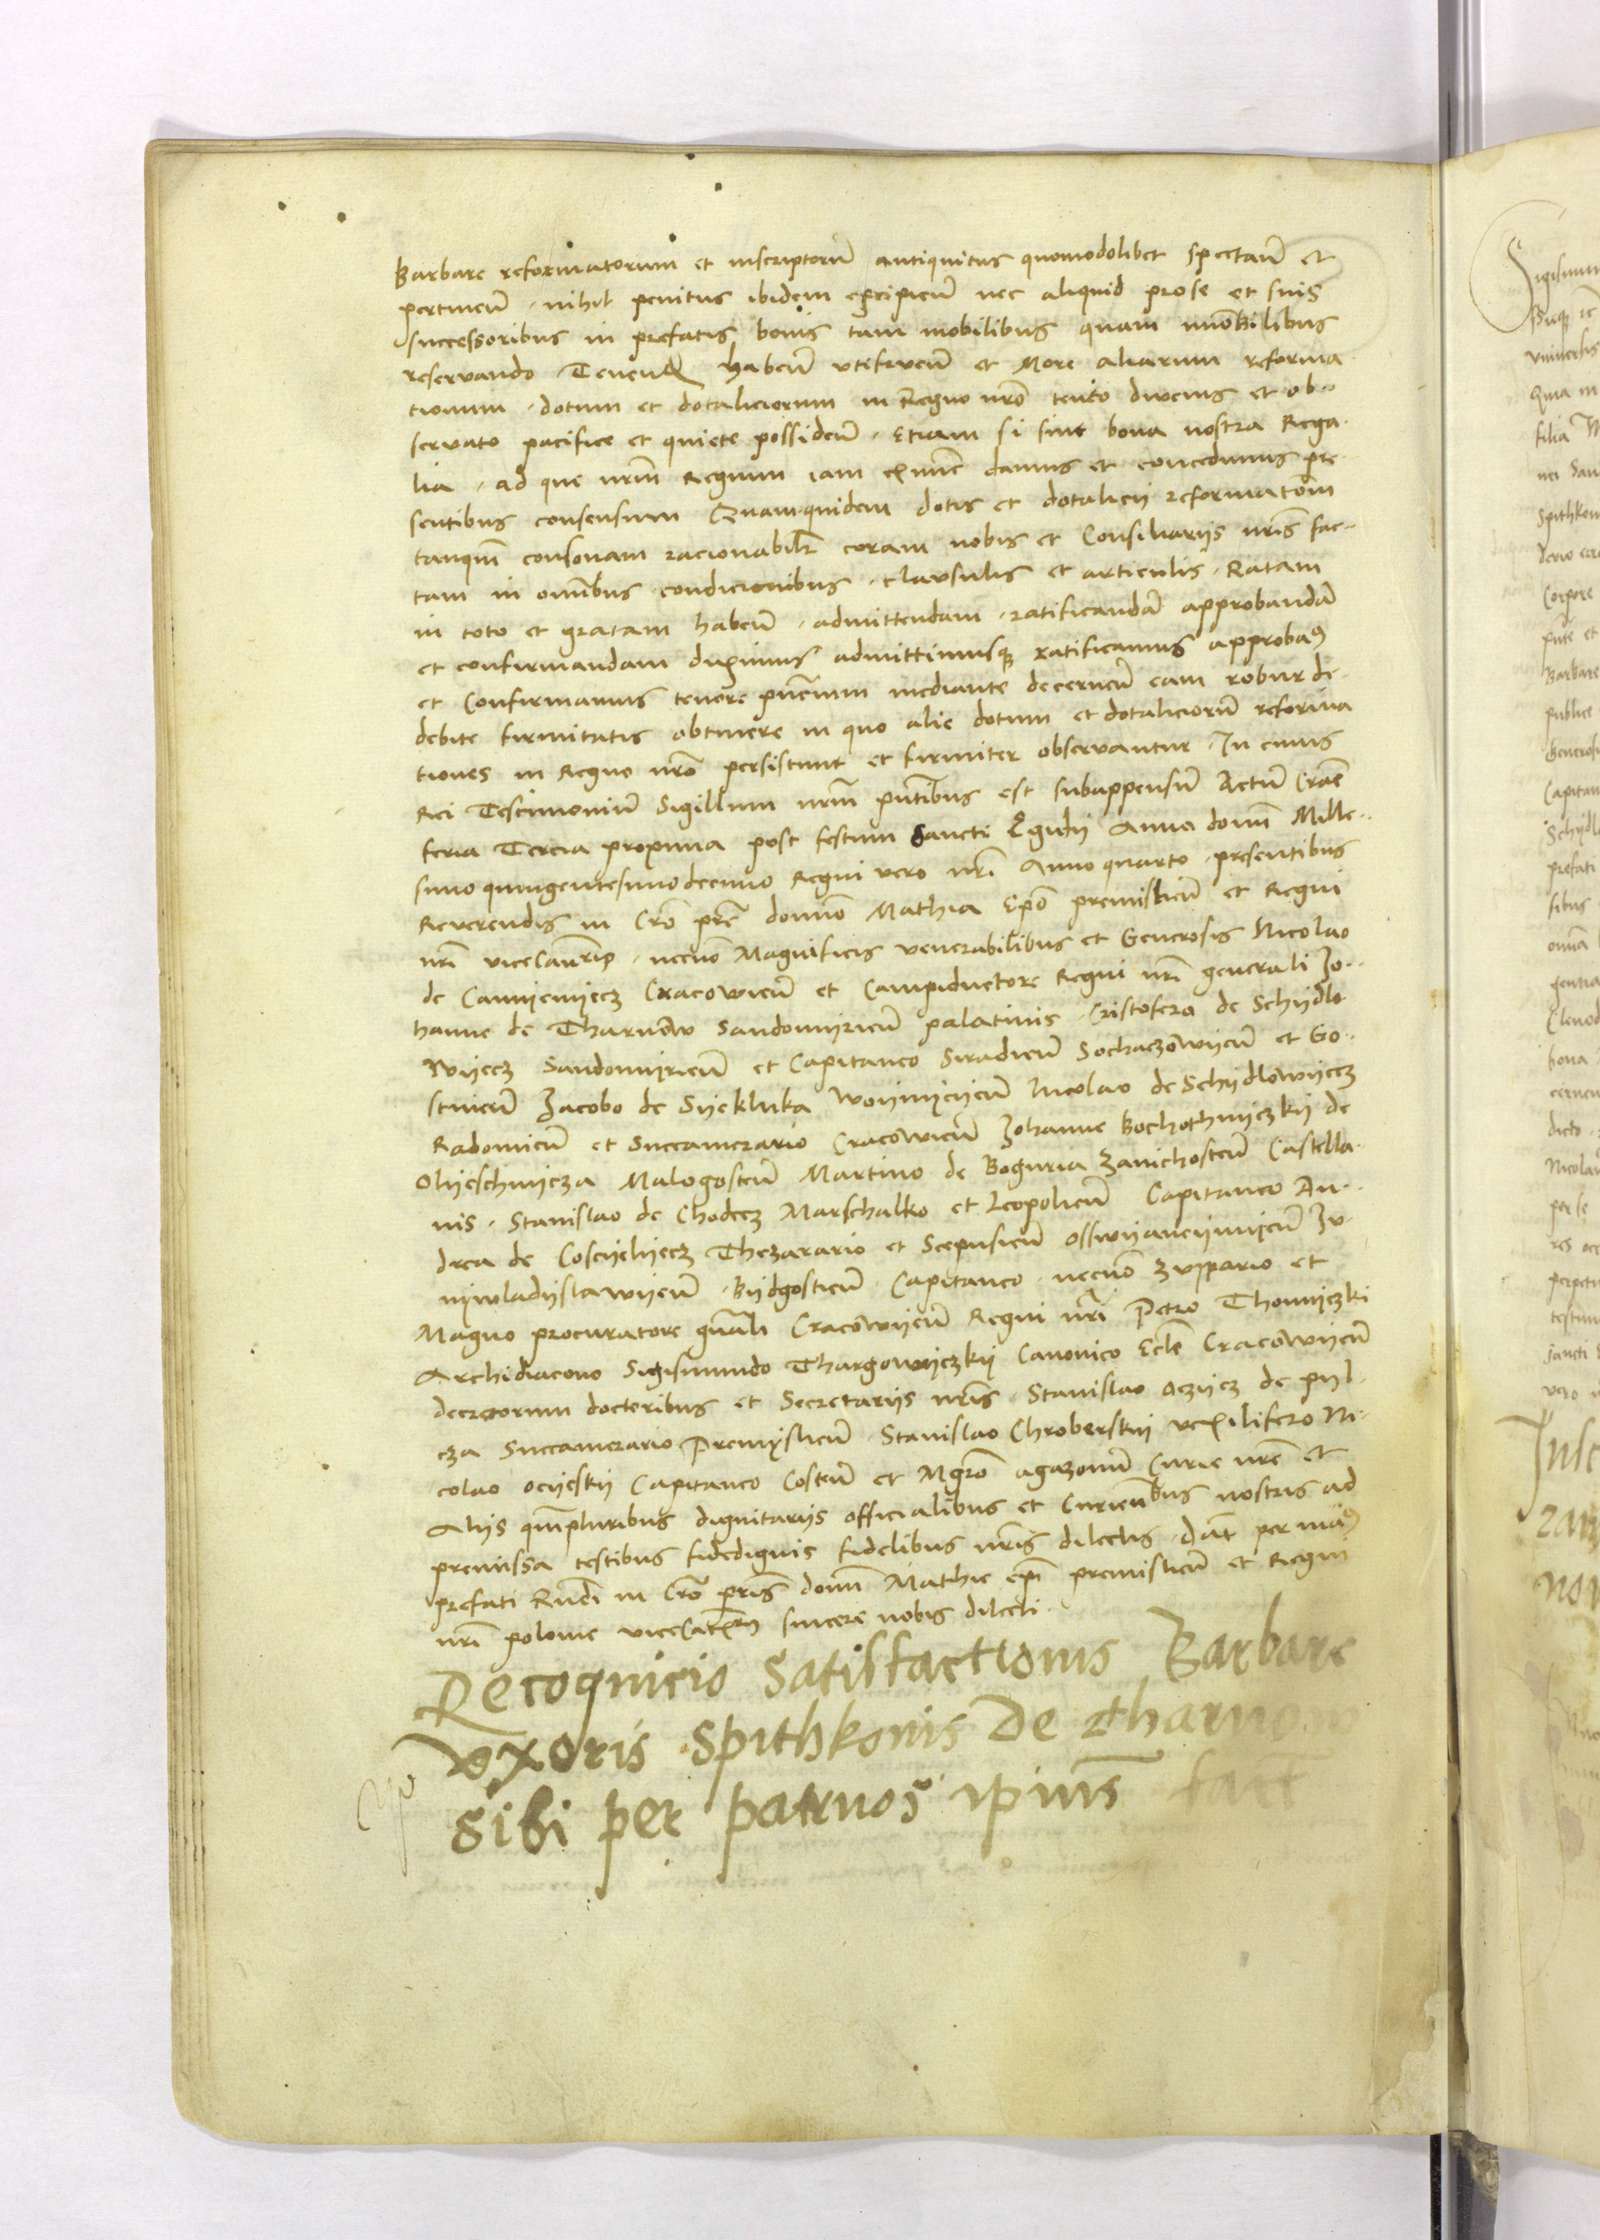 Barbare reformatorum et inscriptorũ antiquitus quomodolibet spectañ et
pertineñ . nihil penitus ibidem excipieñ nec aliquid pro se et suis
successoribus in prefatis bonis tam mobilibus quam immobilibus
reservando Tenend habeñ utifrueñ et More aliarum reforma
tionum . dotum et dotaliciorum in Regno nr̃o tento diucius et ob-
servato pacifice et quiete possideñ . Etiam si sint bona nostra Rega
lia . ad que nr̃m Regium iam ex nunc damus et concedimus pre
sentibus consensum Quamquidem dotis et dotalicij reformatõm
tanquã consonam racionabilr̃ coram nobis et Consiliarijs nr̃is fac-
tam in omĩbus condicionibus . clausulis et articulis . Ratam
in toto et gratam habeñ . admittendam . ratificandã approbandã
et confirmandam duximus admittimusq ratificamus approbaꝰ
et Confirmamus tenore pñcium mediante decerneñ eam robur de
debite firmitatis obtinere in quo alie dotum et dotaliciorũ reforma
tiones in Regno nr̃o persistunt et firmiter observantur . In cuius
Rei Testimoniũ Sigillum nr̃m pñtibus est subappensũ Actũ Crãẽ
feria Tercia proxima post festum Sancti Egidij Anno domĩ Mille-
simo quingentesimo decimo Regni vero nr̃i Anno quarto . presentibus
Reverendis in Cr̃o pr̃e domĩo Mathia Ep̃o premislieñ et Regni
nr̃i vicecancrio . necnõ Magnificis venerabilibus et Generosis Nicolao
de Camyenyecz Cracowieñ et Campiductore Regni nr̃i generali Jo-
hanne de Tharnow Sandomirieñ palatinis . Cristofero de Schydlo
wyecz Sandomirieñ et Capitaneo Siradieñ Sochaczowyeñ et Go-
stinieñ Jacobo de Syekluka Woyniczieñ Nicolao de Schydlowyecz
Radomieñ et Succamerario Cracowieñ Johanne Bochothniczkij de
Olyeschnycza Malogosteñ Martino de Boguria Zawichosteñ Castella
nis . Stanislao de Chodecz Marschalko et Leopolieñ Capitaneo An-
drea de Coscyelyecz Thezaurario et Scepusieñ Osswyancymieñ Ju
niwladyslawyeñ . Bydgostieñ Capitaneo . necnõ Zuppario et
Magno procuratore gñali Cracowyeñ Regni nr̃i Petro Thomyczki
Archidiacono Sigismundo Thargowyczkij Canonico Eclẽ Cracowyeñ
decretorum doctoribus et Secretarijs nr̃is . Stanislao de pyl
cza Succamerario Premyslieñ . Stanislao Chroberskij vexilifero Ni-
colao ocyeskij Capitaneo Costeñ et Mgr̃o agazonũ Curie nr̃e et
Alijs qm̃pluribus dignitarijs officialibus et Curieñbus nostris ad
premissa testibus fidedignis fidelibus nr̃is dilectis . Dat̃ per maꝰ
prefati Rñdi in Cr̃o pr̃is domĩ Mathie ep̃i premislieñ et Regni
nr̃i polonie vicecancrij sincere nobis dilecti .
Recognicio satisfactionis Barbare
uxoris Spithkonis De Tharnow
sibi per patruos ipius fact